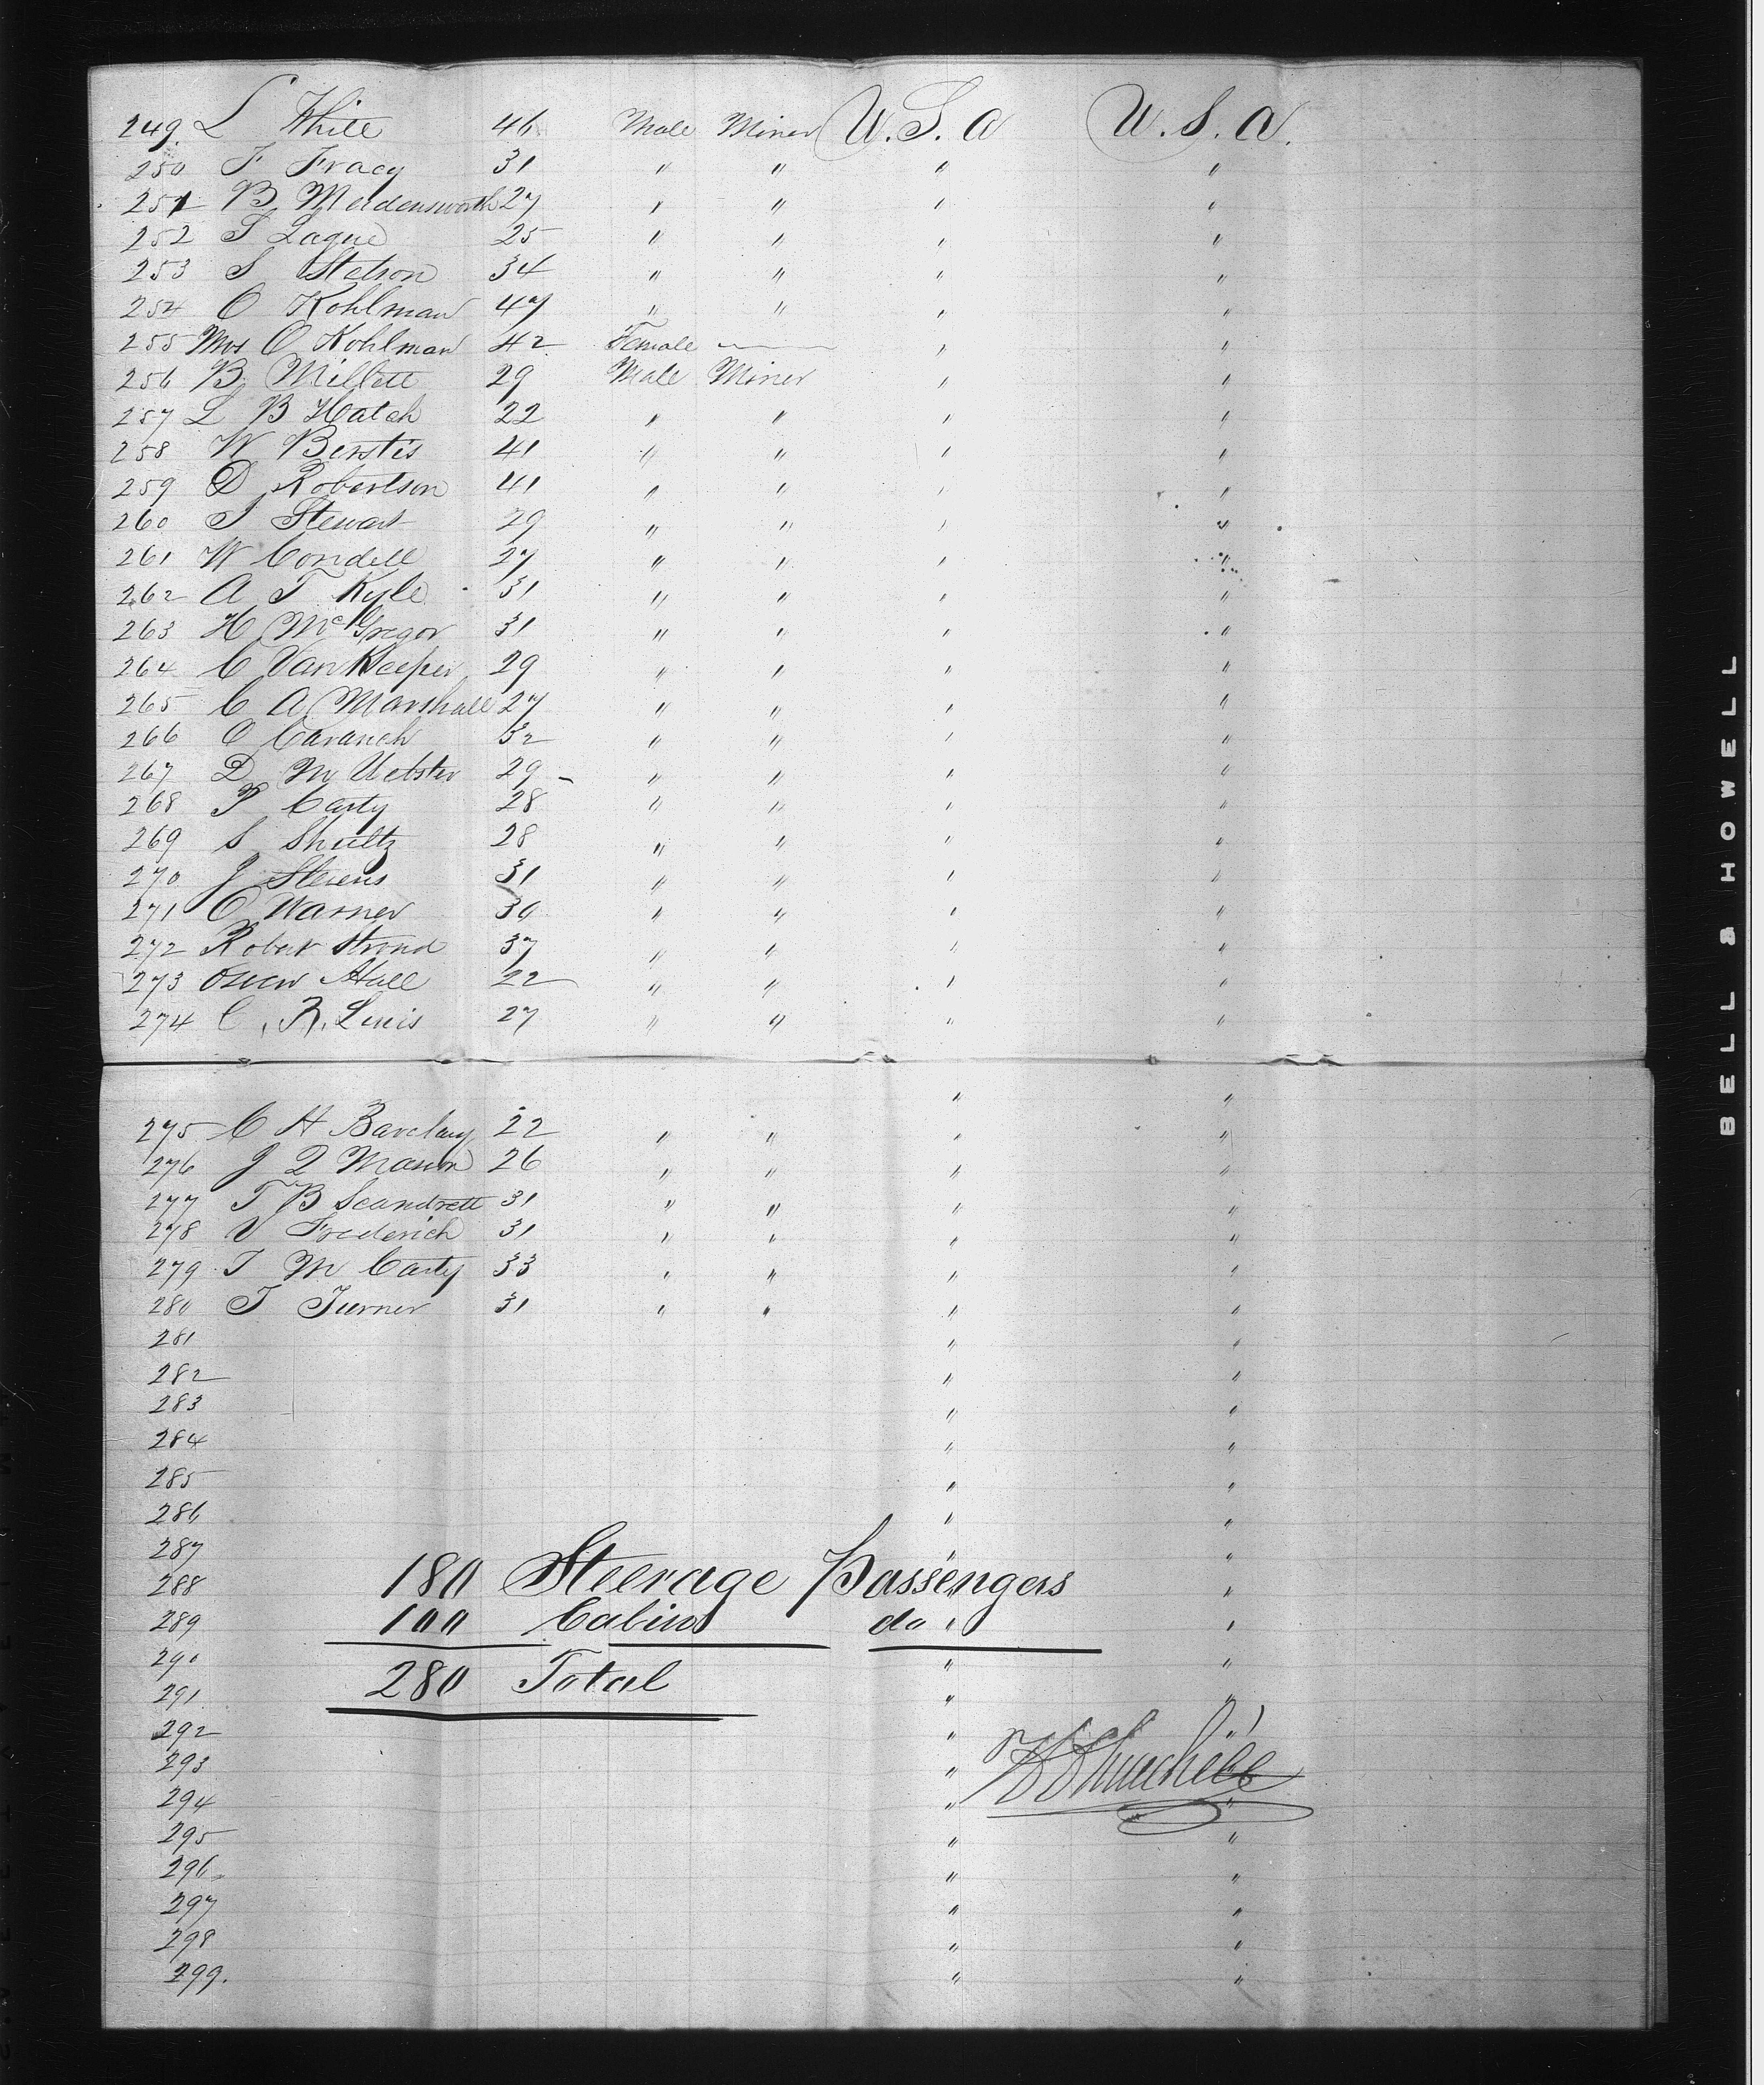 249. L White 46 Male Miner U.S.A U.S.A.
250 T Tracy 31 " " " "
251 B Meddensworth 27 " " " "
252 S Lague 25 " " " "
253 S Stetson 34 " " " "
254 O Kohlman 47 " " " "
255 Mrs O Kohlman 42 Female — " "
256 B Millett 29 Male Miner " "
257 L B Hatch 22 " " " "
258 W Berstis 41 " " " "
259 D Robertson 41 " " " "
260 S Stewart 29 " " " "
261 W Condell 27 " " " "
262 A T Kyle 31 " " " "
263 H McGregor 31 " " " "
264 C VanKeeper 29 " " " "
265 C A Marshall 27 " " " "
266 O Cavanch 32 " " " "
267 D M Webster 29 " " " "
268 P Carty 28 " " " "
269 S Shultz 28 " " " "
270 J Stevens 31 " " " "
271 O Warner 30 " " " "
272 Robert Strond 37 " " " "
273 Hall 22 " " " "
274 C. R. Lewis 27 " " " "
" "
275 C H Barclay 22 " " " "
276 J Q Mason 26 " " " "
277 T B Scandrett 31 " " " "
278 V Frederich 31 " " " "
279 T M Carty 33 " " " "
280 T Turner 31 " " " "
281 " "
282 " "
283 " "
284 " "
285 " "
286 " "
287 " "
288 180 Steerage Passengers " "
289 100 Cabin do " "
290 " "
291 280 Total " "
292 " "
293 "
294 " "
295 " "
296 " "
297 " "
298 " "
299. " "
BELL & HOWELL